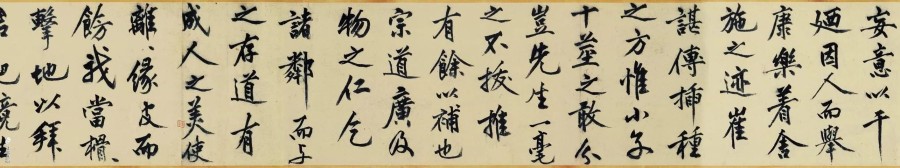 妄意以干
廼因人而舉
康樂着舎
施之迹崔
諶傳揷種
之方惟小子
十莖之敢分
豈先生一毫
之不拔推
有餘以補也
宗道廣及
物之仁乞
諸鄰而与
之存道有
成人之美使
離、緣皮而
餝我當榾、
擊地以拜